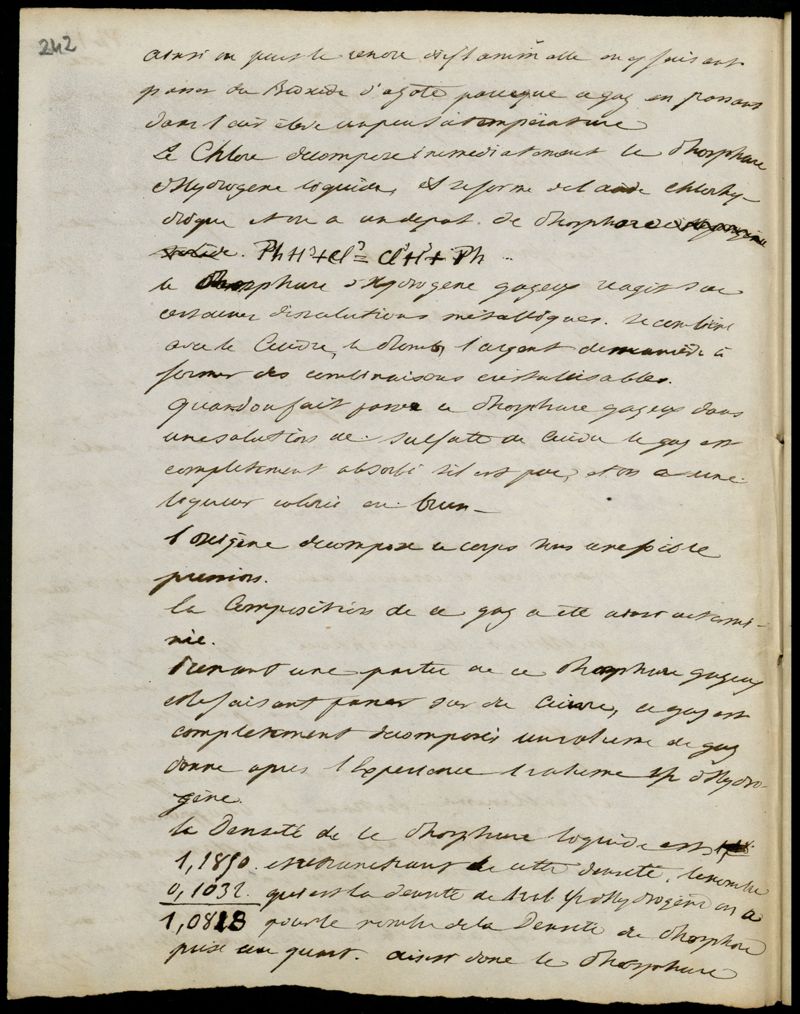 242
ainsi on peut le rendre inflammable en y faisant
passer du Bioxide d'azote parceque ce gaz en passant
dans l'air élève un peu sa température
Le Chlore decompose immediatement le Phosphure
d'Hydrogène liquide, il se forme de l'acide Chlorhy-
drique et on a un depot de Phosphore
solide. PhH³+Cl³ = Cl³H³+Ph
le Phosphure d'Hydrogène gazeux reagit sur
certaines dissolutions métalliques. se combine
avec le Cuivre, le Plomb, l'argent de manière à
former des combinaisons cristallisables.
Quand on fait passer ce Phosphure gazeux dans
une solution de sulfate de Cuivre le gaz est
completement absorbé s'il est pur, et on a une
liqueur colorée en brun_
l'oxigène decompose ce corps sous une faible
pression.
la Composition de ce gaz a été ainsi determi-
née.
Prenant une partie de ce Phosphure gazeux
et le faisant passer sur du Cuivre, ce gaz est
completement decomposé, un volume de gaz
donne après l'Experience 1 volume 1/2 d'Hydro-
gène.
la Densité de ce Phosphure liquide est
1,1850. et retranchant de cette densité, le nombre
0,1032. qui est la densité de 1 vol. 1/2 d'Hydrogène on a
1,0818 pour le nombre de la Densité de Phosphore
prise au quart. ainsi donc le Phosphure